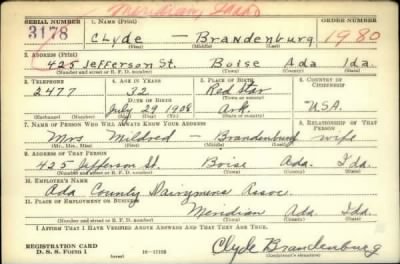 Meridian, Idaho
SERIAL NUMBER 1. NAME (Print) ORDER NUMBER
3178 Clyde — Brandenburg 1980
(First) (Middle) (Last)
2. ADDRESS (Print)
425 Jefferson St. Boise Ada Ida.
(Number and street or R. F. D. number) (Town) (County) (State)
3. TELEPHONE 4. AGE IN YEARS 5. PLACE OF BIRTH 6. COUNTRY OF CITIZENSHIP
2477 32 Red Star
DATE OF BIRTH (Town or county)
July 29 1908 Ark. U.S.A.
(Exchange) (Number) (Mo.) (Day) (Yr.) (State or country)
7. NAME OF PERSON WHO WILL ALWAYS KNOW YOUR ADDRESS 8. RELATIONSHIP OF THAT PERSON
Mrs Mildred — Brandenburg wife
(Mr., Mrs., Miss) (First) (Middle) (Last)
9. ADDRESS OF THAT PERSON
425 Jefferson St. Boise Ada. Ida.
(Number and street or R. F. D. number) (Town) (County) (State)
10. EMPLOYER'S NAME
Ada County Dairymens Assoc.
11. PLACE OF EMPLOYMENT OR BUSINESS
Meridian Ada Ida.
(Number and street or R. F. D. number) (Town) (County) (State)
I AFFIRM THAT I HAVE VERIFIED ABOVE ANSWERS AND THAT THEY ARE TRUE.
REGISTRATION CARD
D. S. S. FORM 1 (over) Clyde Brandenburg
(Registrant's signature)